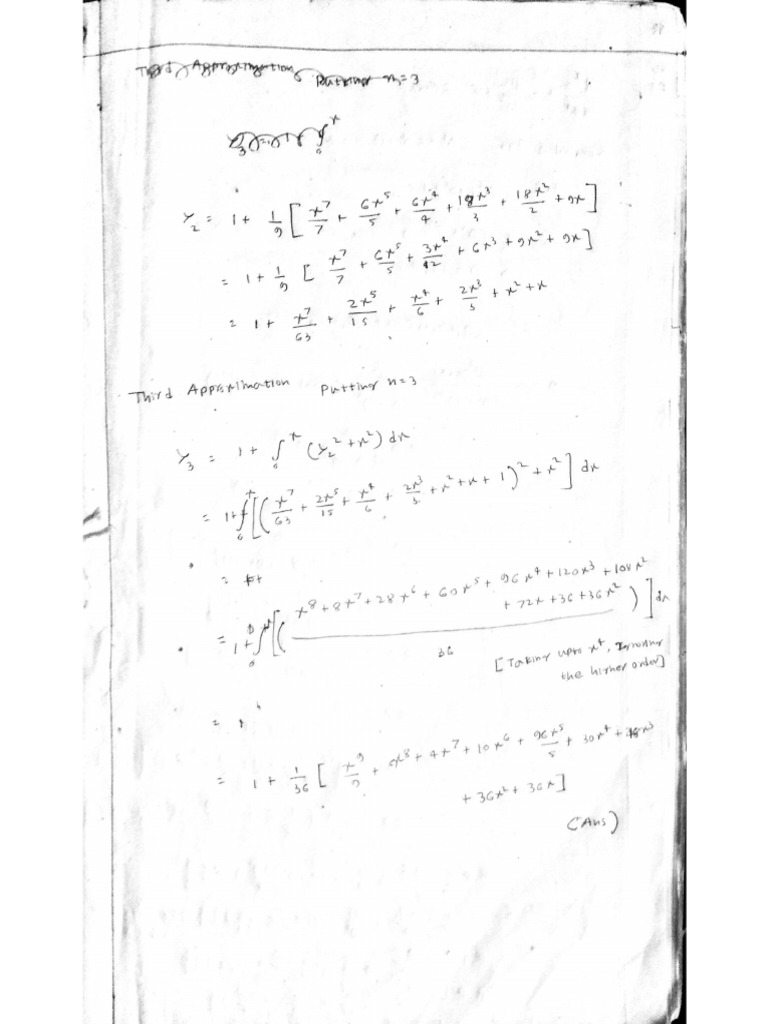 Third Approximation Putting n=3
y₃ = 1 + ∫₀ˣ
y₂ = 1 + 1/9 [ x⁷/7 + 6x⁵/5 + 6x⁴/4 + 18x³/3 + 18x²/2 + 9x ]
= 1 + 1/9 [ x⁷/7 + 6x⁵/5 + 3x⁴/2 + 6x³ + 9x² + 9x ]
= 1 + x⁷/63 + 2x⁵/15 + x⁴/6 + 2x³/3 + x² + x
Third Approximation Putting n=3
y₃ = 1 + ∫₀ˣ (y₂² + x²) dx
= 1 + ∫₀ˣ [ ( x⁷/63 + 2x⁵/15 + x⁴/6 + 2x³/3 + x² + x + 1 )² + x² ] dx
= 1+
= 1 + ∫₀ˣ [ ( x⁸ + 8x⁷ + 28x⁶ + 60x⁵ + 96x⁴ + 120x³ + 108x²
+ 72x + 36 + 36x² ) / 36 ] dx
[Taking upto x⁴, Ignoring
the higher order]
= 1
= 1 + 1/36 [ x⁹/9 + x⁸ + 4x⁷ + 10x⁶ + 96x⁵/5 + 30x⁴ + 48x³
+ 36x² + 36x ]
(Ans)